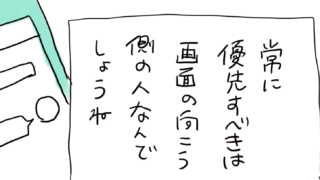 常に
優先すべきは
画面の向こう
側の人なんで
しょうね